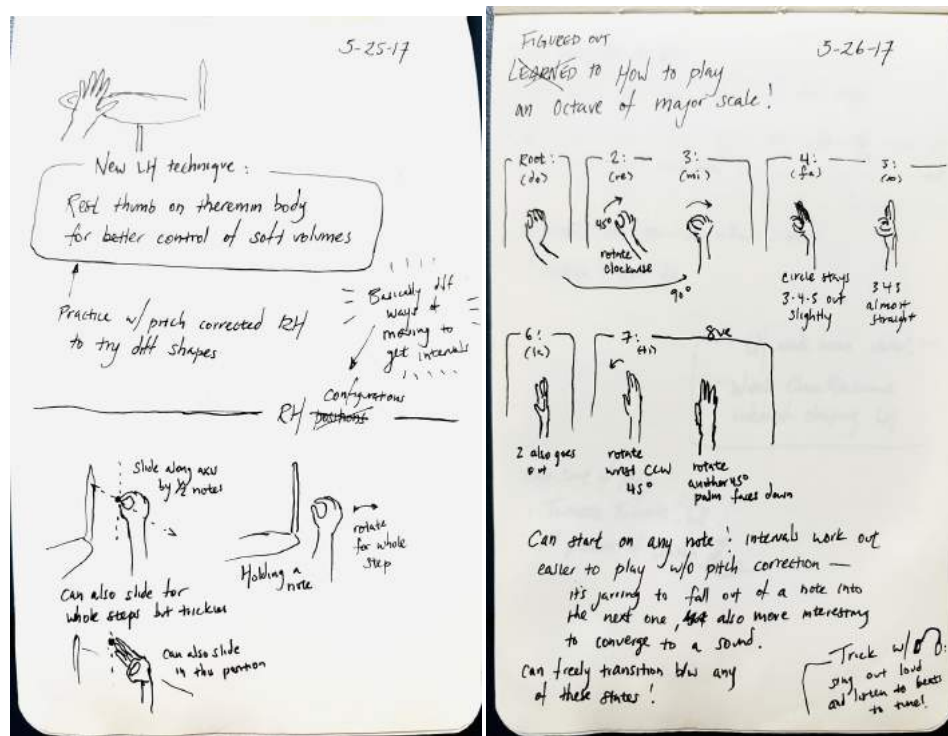 5-25-17
New LH technique:
Rest thumb on theremin body
for better control of soft volumes
Practice w/ pitch corrected RH
to try diff shapes
Basically diff
ways of
moving to
get intervals
Configurations
RH positions
Slide along axis
by 1/2 notes
rotate
for whole
step
Holding a
note
Can also slide for
whole steps but trickier
Can also slide
in this position
5-26-17
FIGURED OUT
LEARNED to How to play
an Octave of major scale!
Root:
(do)
2:
(re)
3:
(mi)
4:
(fa)
5:
(so)
45°
rotate
clockwise
90°
circle stays
3-4-5 out
slightly
3 4 5
almost
straight
6:
(la)
7:
(ti)
8ve
2 also goes
out
rotate
wrist CCW
45°
rotate
another 45°
palm faces down
Can start on any note! intervals work out
easier to play w/o pitch correction —
it's jarring to fall out of a note into
the next one, also more interesting
to converge to a sound.
Can freely transition b/w any
of these states!
Trick w/
sing out loud
and listen to beats
to tune!